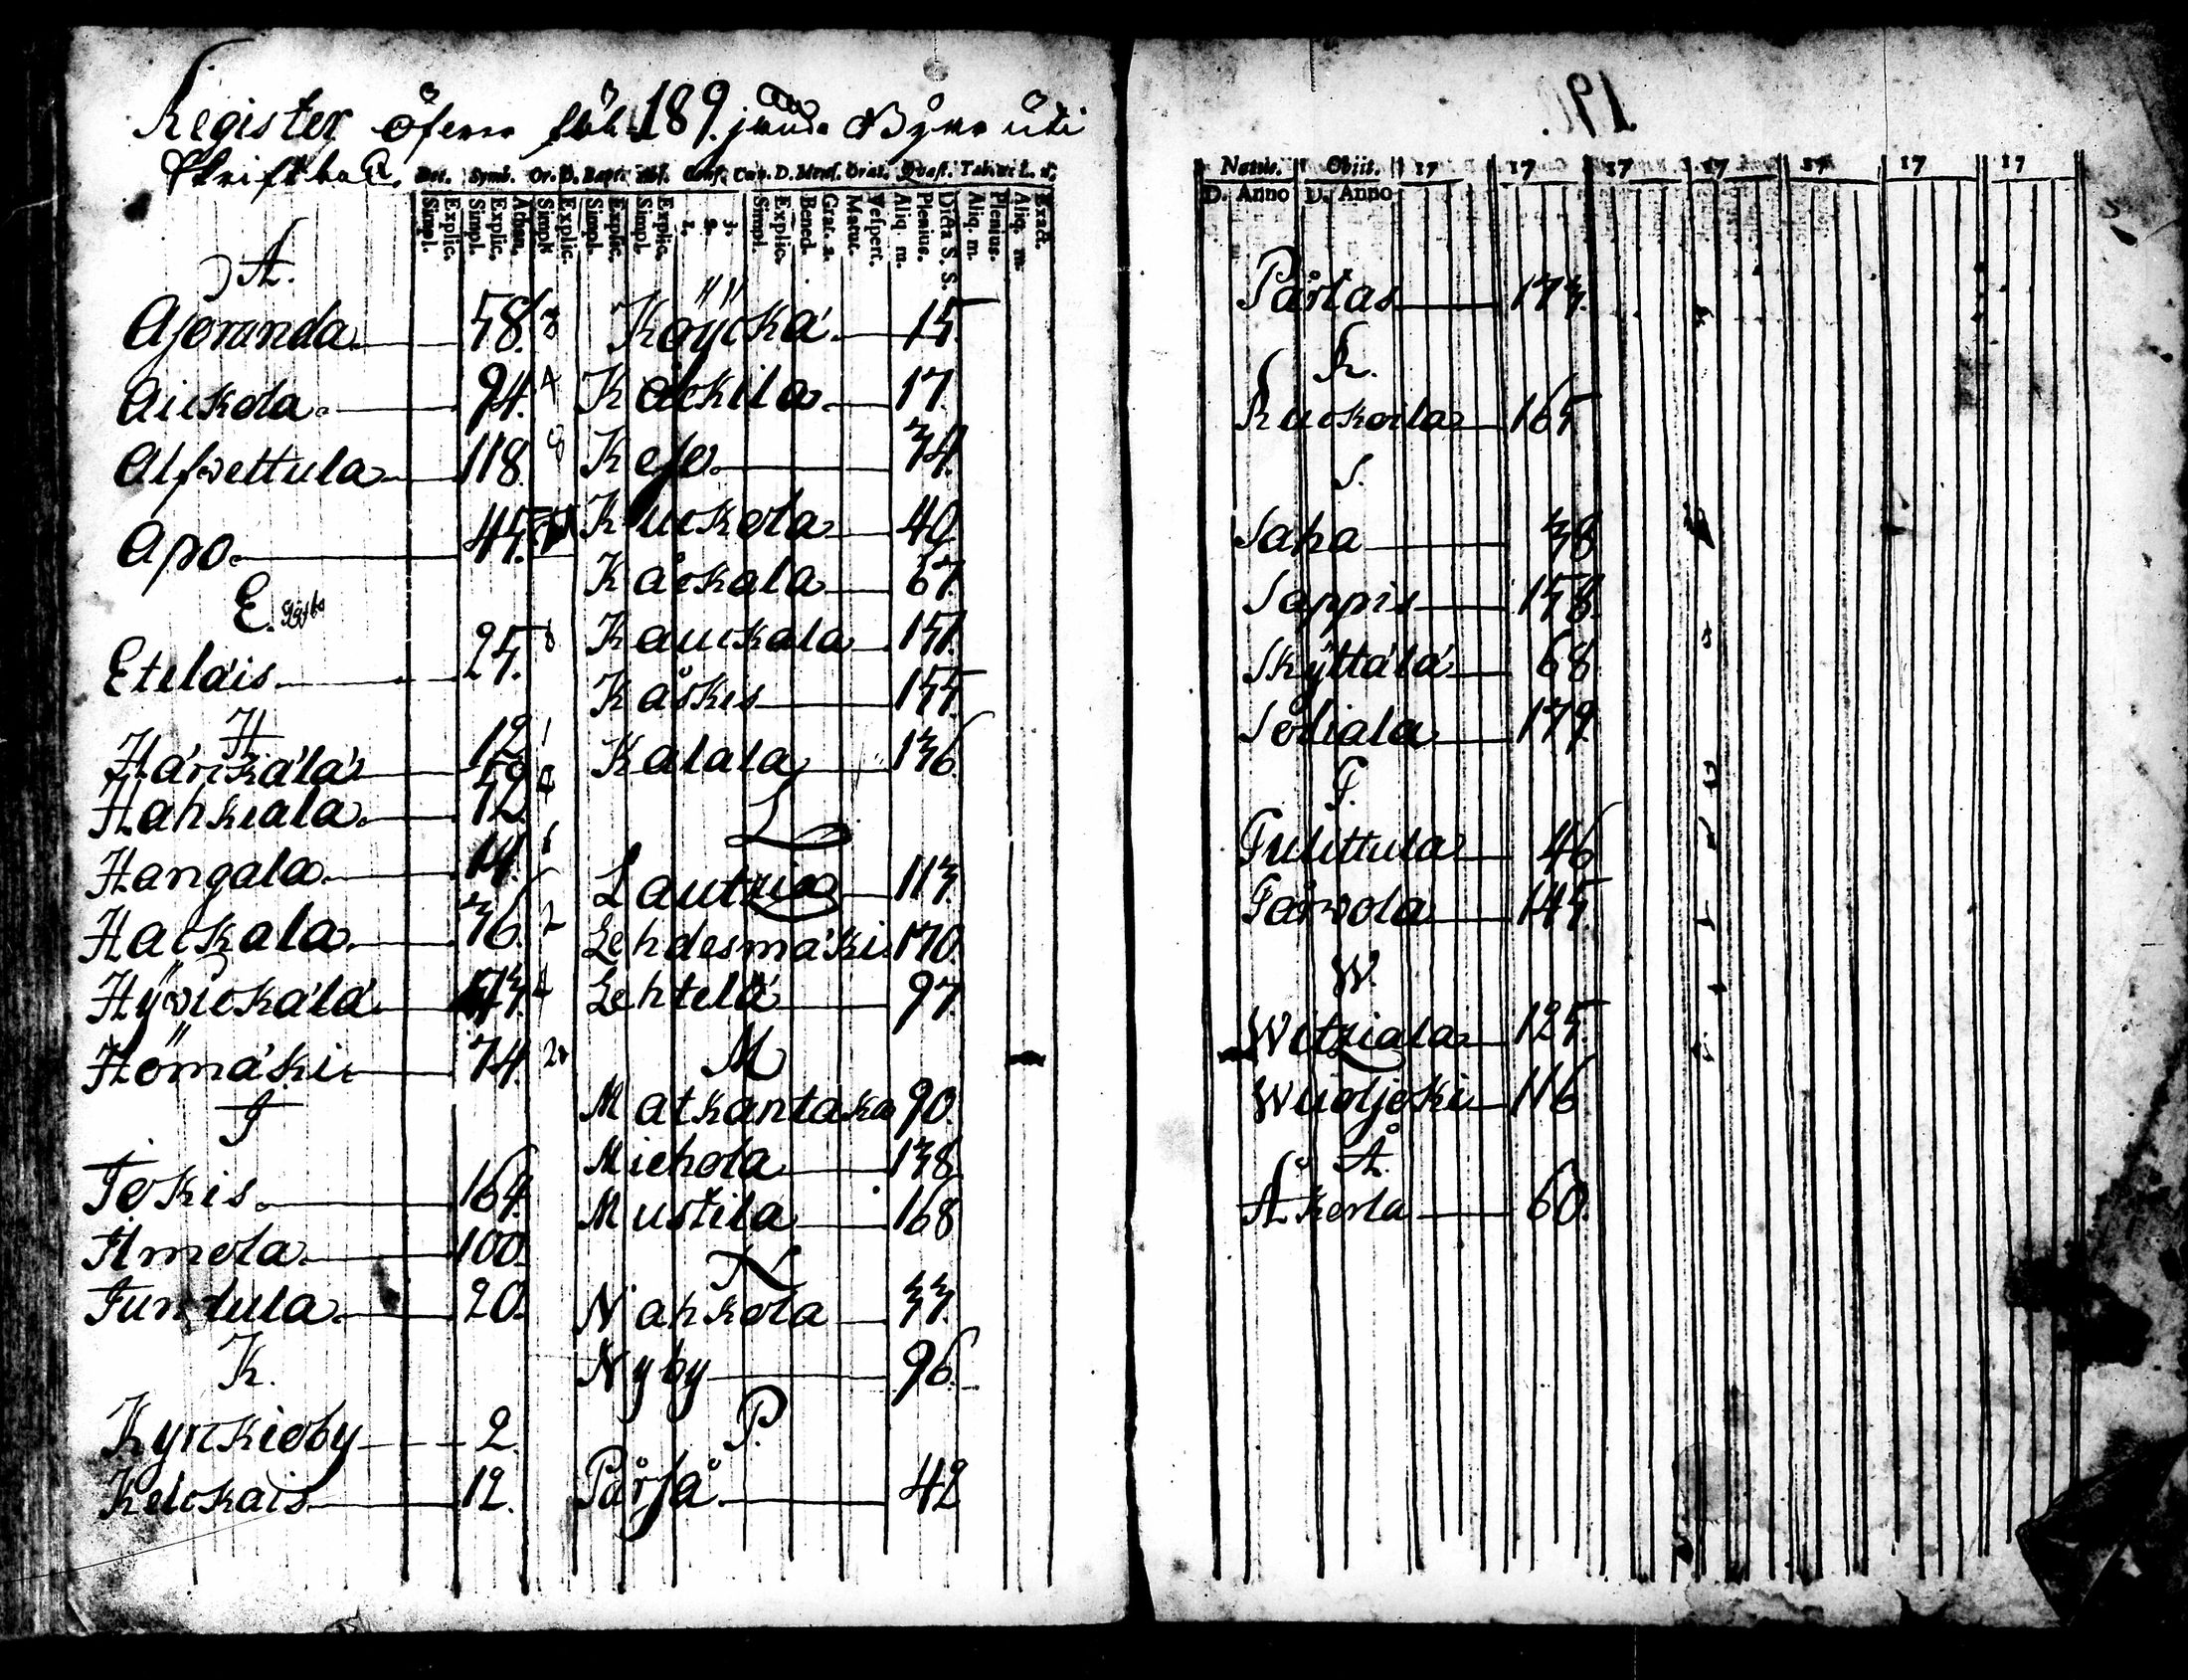 Register öfwer föl 189. jande Byar uti
Skriftbok.
Dec. Symb. Or. D. Bapt. Abs. Conf. Cœn. D. Mens. Orat. Quæst. Tab. œc L. n.
Simpl. Explic. Simpl. Explic. Athan. Simpl. Explic. Simpl. Explic. Simpl. Explic. 1. 2. 3. Simpl. Explic. Bened. Grat. a. Matut. Vespert. Aliq. m. Plenius. Dicta S. S. Aliq. m. Plenius. Aliq. m. Exact.
A.
Ajoranda 58. 8
Aickola 94. 4
Alfwettula 118. 8
Apo 45.
E.
Eteläis 25. 8
H
Härckälä 12 1
Hahkiala 52 6
Hangala 14. 6
Hackala 36. 2
Hÿwickälä 43. 4
Hömäki 74. 2
J
Jokis 164.
Ilmola 100.
Juntula 20.
K.
Kyrckioby 2.
Kelckais 12.
Köÿckä 15.
Käckilä 17.
Kejo 34.
Kuckola 49
Kåckala 67.
Kauckala 151.
Kåskis 155.
Kalala 136.
L
Lautzia 113.
Lehdesmäki 170.
Lehtelä 97.
M
Matkantaka 90.
Miehola 138
Mustila 168
N
Nahkola 33.
Nyby 96.
P.
Pårså 42
190.
Natus. Obiit. 17 17 17 17 17 17 17
D. Anno D. Anno
Pårtas 173.
R.
Ruokoila 165
S.
Saha 38
Sappis 158.
Skÿttälä 68
Sodiala 179.
T.
Tulittula 46
Torwola 145.
W.
Witziala 125.
Wuoljoki 116
Å.
Åkerla 60.